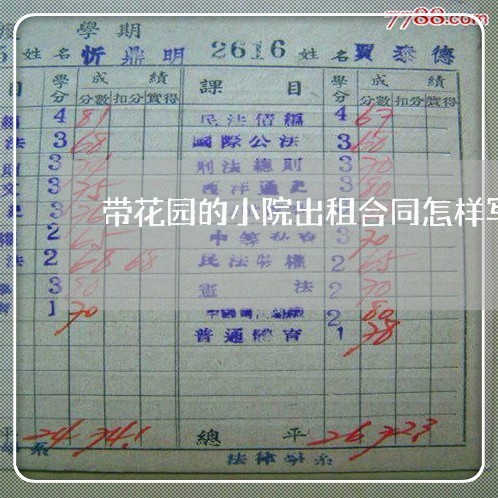 7788.com
學期
姓名忻鼎明 2616 姓名賈泰德
目 學分 成績 課目 學分 成績
分數 扣分 實得 分數 扣分 實得
4 81 民法債編 4 67
法 3 68 國際公法 3 60
3 刑法總則 3 70
文 3 75 西洋通史 3 80
3
带花园的小院出租合同怎样写
2 65 3 70
法 2 68 68 民法物權 2 65
3 80 憲法 2 70
1 70 2 80
普通體育 1 78
平 24 74.1 總平 26 72.3
系 法律學系